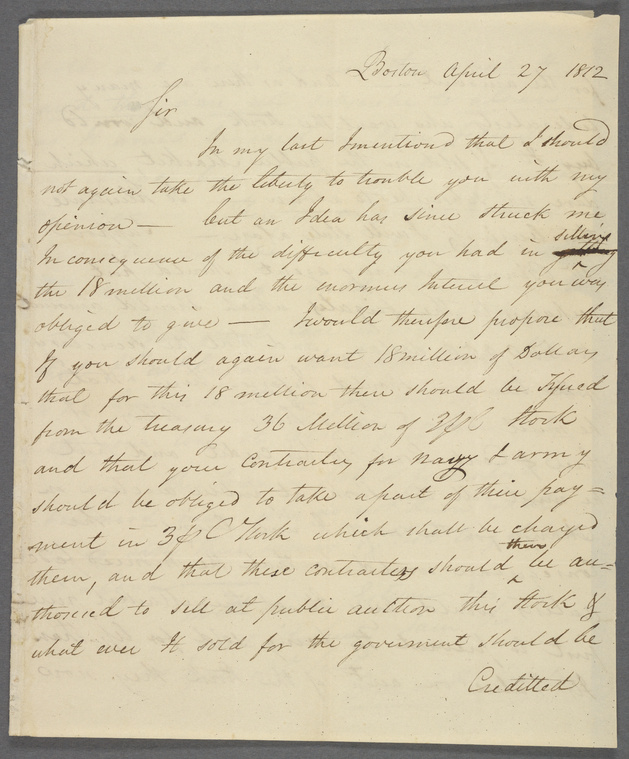 Boston April 27 1812
Sir
In my last I mentiond that I should
not again take the liberty to trouble you with my
opinion — but an Idea has since struck me
In consequence of the difficulty you had in selling
the 18 million and the enormus Interest you was
obliged to give — I would therefore propose that
If you should again want 18 million of Dollars
that for this 18 million there should be Issued
from the treasury 36 Million of 3 p C Stock
and that your Contractors for navy & army
should be obliged to take a part of their pay=
ment in 3 p C Stock which shall be charged
them, and that these contractors should then be au=
thorised to sell at public auction this Stock &
what ever It sold for the goverment should be
Creditted